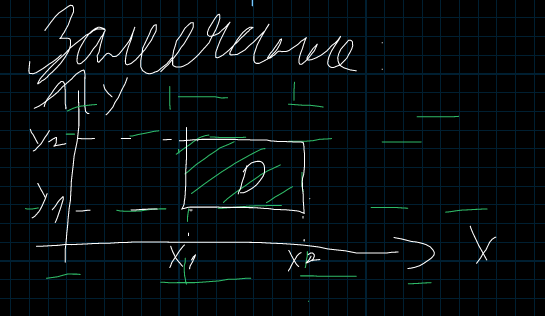 Замечание:
Y
Y2
D
Y1
X1 X2
X